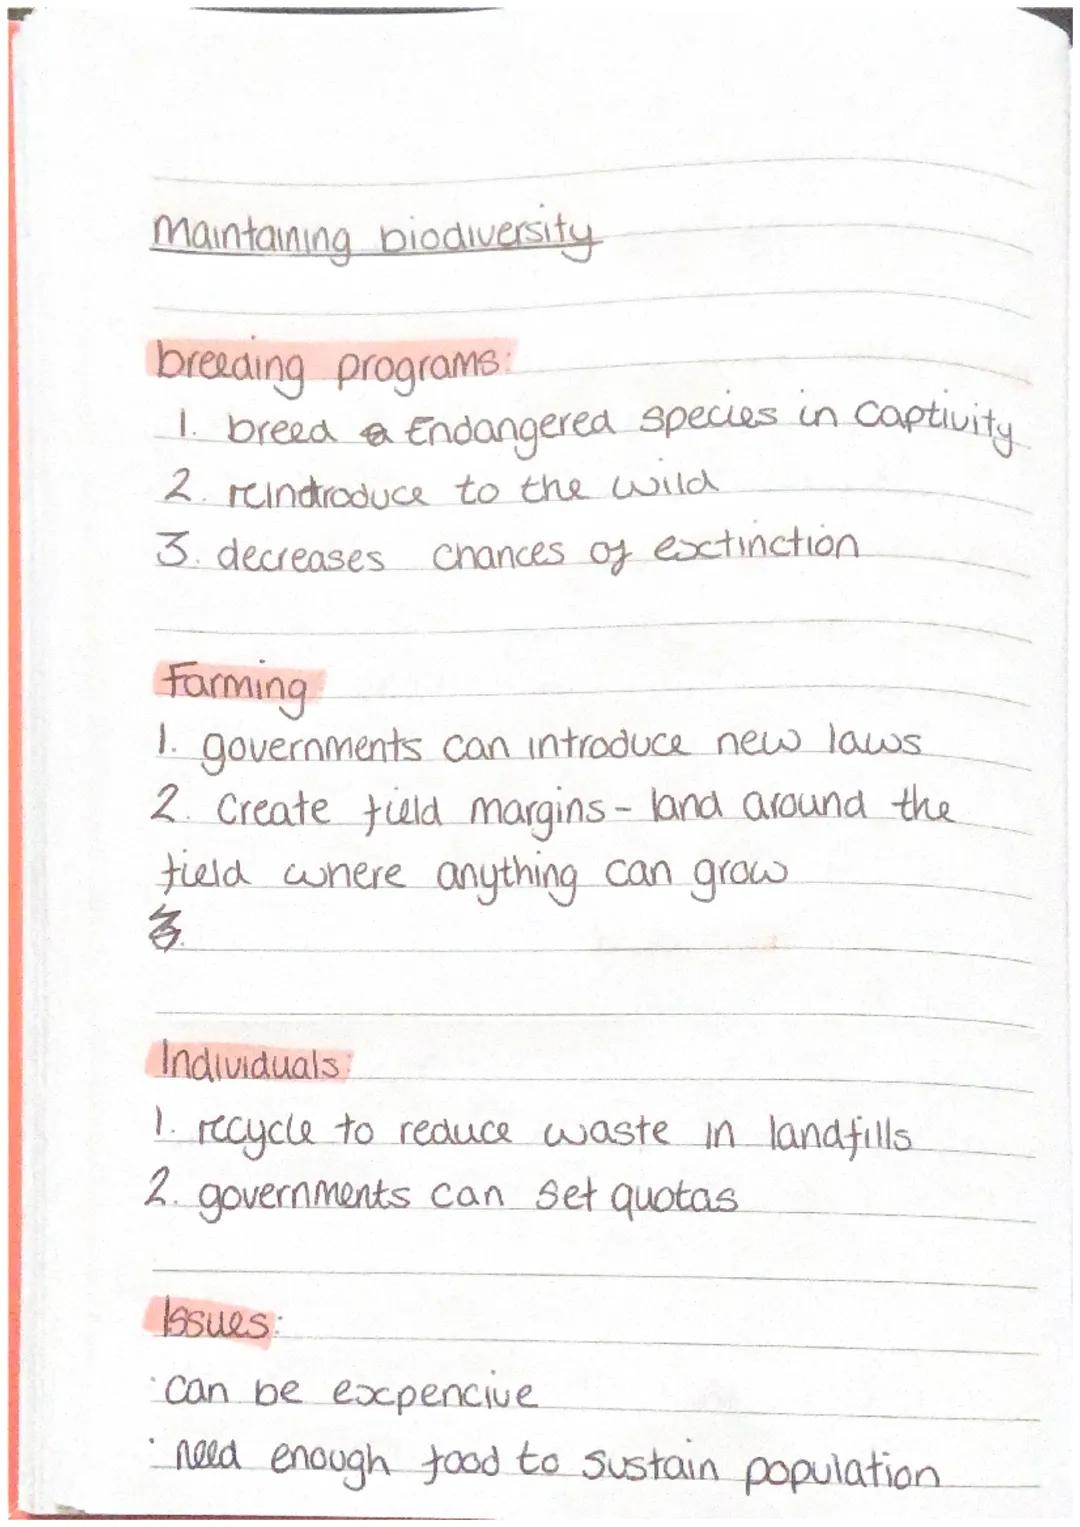 Maintaining biodiversity
breeding programs:
1. breed a Endangered species in captivity
2. reindroduce to the wild
3. decreases chances of exctinction
Farming
1. governments can introduce new laws
2. Create field margins - land around the
field where anything can grow
3.
Individuals:
1. recycle to reduce waste in landfills
2. governments can set quotas
Issues:
· can be expencive
· need enough food to sustain population